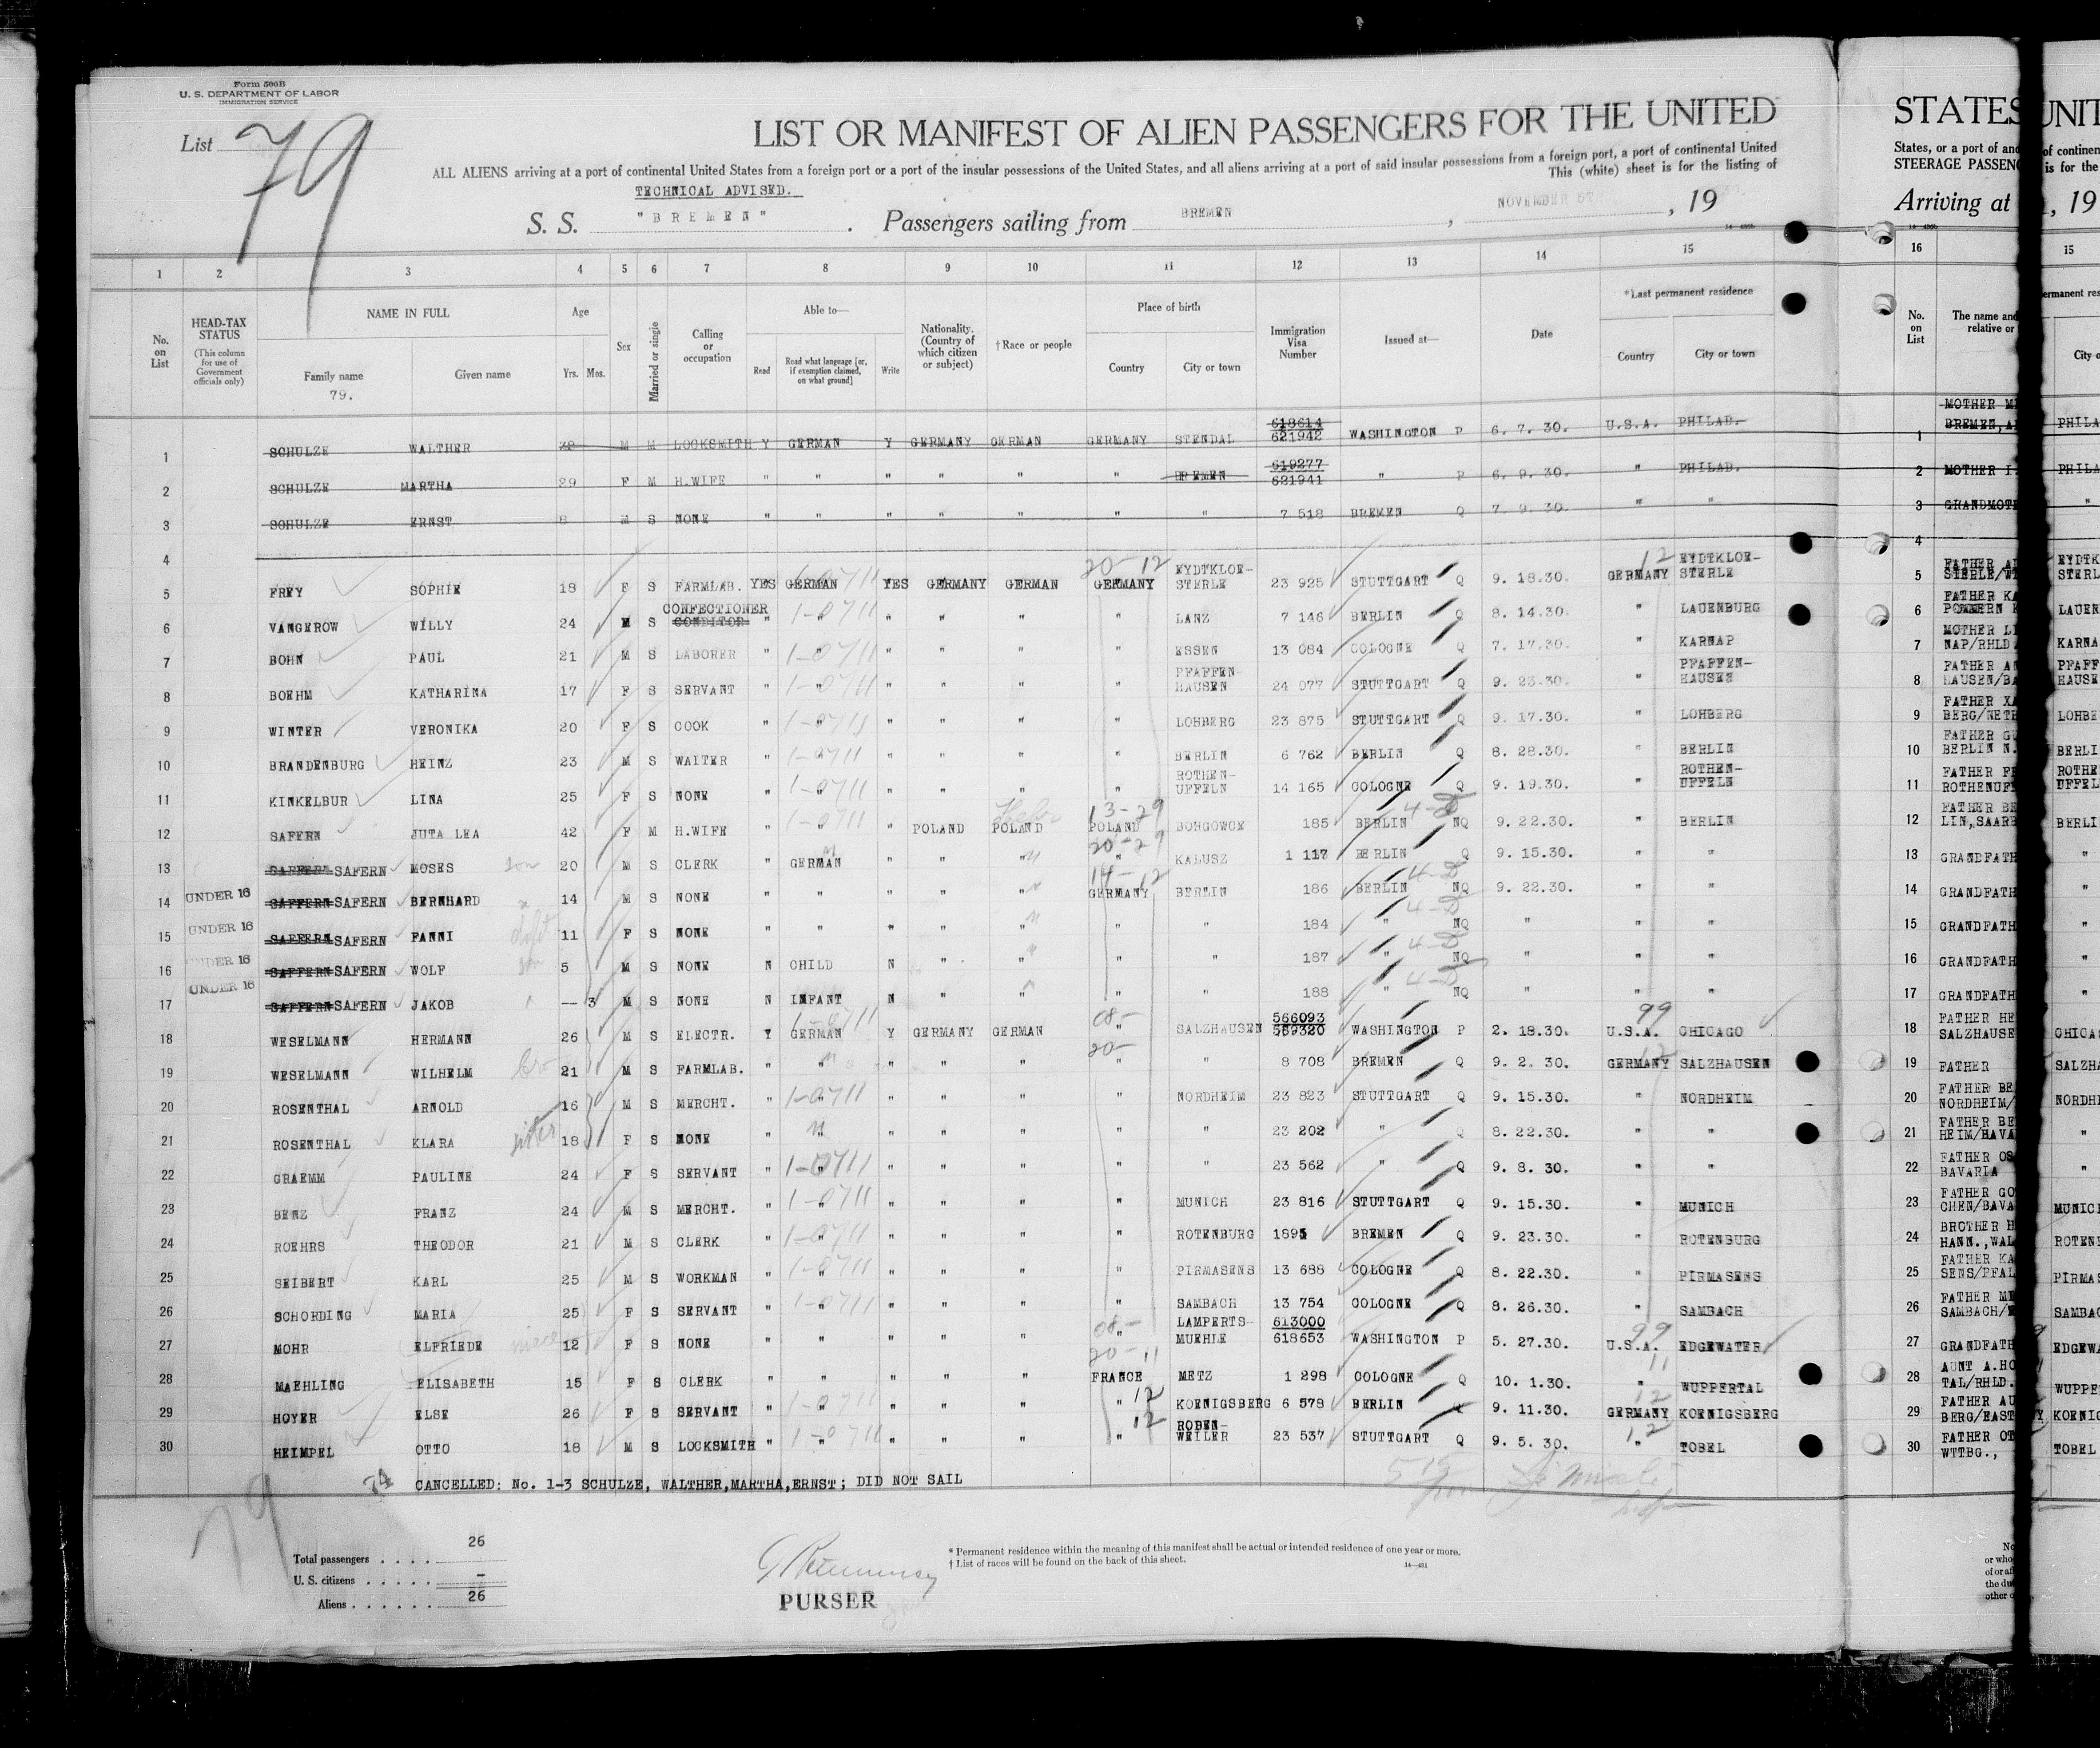 Form 500B
U. S. DEPARTMENT OF LABOR
IMMIGRATION SERVICE
List 79
LIST OR MANIFEST OF ALIEN PASSENGERS FOR THE UNITED
ALL ALIENS arriving at a port of continental United States from a foreign port or a port of the insular possessions of the United States, and all aliens arriving at a port of said insular possessions from a foreign port, a port of continental United
This (white) sheet is for the listing of
TECHNICAL ADVISED.
S. S. "BREMEN". Passengers sailing from BREMEN, NOVEMBER 5TH, 19
1 2 3 4 5 6 7 8 9 10 11 12 13 14 15
No. on List
HEAD-TAX STATUS (This column for use of Government officials only)
NAME IN FULL Family name Given name
79.
Age Yrs. Mos.
Sex
Married or single
Calling or occupation
Able to— Read Read what language [or, if exemption claimed, on what ground] Write
Nationality. (Country of which citizen or subject)
†Race or people
Place of birth Country City or town
Immigration Visa Number
Issued at—
Date
*Last permanent residence Country City or town
1 SCHULZE WALTHER M M LOCKSMITH Y GERMAN Y GERMANY GERMAN GERMANY STENDAL 618614 621942 WASHINGTON P 6. 7. 30. U.S.A. PHILAD.
2 SCHULZE MARTHA 29 F M H.WIFE " " " " " " BREMEN 619277 621941 " P 6. 9. 30. " PHILAD.
3 SCHULZE ERNST 8 M S NONE " " " " " " " 7 518 BREMEN Q 7. 9. 30. " "
4
5 FREY SOPHIE 18 F S FARMLAB. YES GERMAN YES GERMANY GERMAN 20-12 GERMANY EYDTKLOE-STERLE 23 925 STUTTGART Q 9. 18.30. 12 GERMANY EYDTKLOE-STERLE
6 VANGEROW WILLY 24 M S CONFECTIONER CONDITOR " 1-0711 " " " " " LANZ 7 146 BERLIN Q 8. 14.30. " LAUENBURG
7 BOHN PAUL 21 M S LABORER " 1-0711 " " " " " ESSEN 13 084 COLOGNE Q 7. 17.30. " KARNAP
8 BOEHM KATHARINA 17 F S SERVANT " 1-0711 " " " " " PFAFFEN-HAUSEN 24 077 STUTTGART Q 9. 23.30. " PFAFFEN-HAUSEN
9 WINTER VERONIKA 20 F S COOK " 1-0711 " " " " " LOHBERG 23 875 STUTTGART Q 9. 17.30. " LOHBERG
10 BRANDENBURG HEINZ 23 M S WAITER " 1-0711 " " " " " BERLIN 6 762 BERLIN Q 8. 28.30. " BERLIN
11 KINKELBUR LINA 25 F S NONE " 1-0711 " " " " " ROTHEN-UFFELN 14 165 COLOGNE Q 9. 19.30. " ROTHEN-UFFELN
12 SAFERN JUTA LEA 42 F M H.WIFE " 1-0711 " " POLAND POLAND 13-29 POLAND BOHGOWCE 185 BERLIN 4-D NQ 9. 22.30. " BERLIN
13 SAFFERN SAFERN MOSES son 20 M S CLERK " GERMAN " " " 20-29 " KALUSZ 1 117 BERLIN Q 9. 15.30. " "
14 UNDER 16 SAFFERN SAFERN BERNHARD 14 M S NONE " " " " " 14-12 GERMANY BERLIN 186 BERLIN 4-D NQ 9. 22.30. " "
15 UNDER 16 SAFFERN SAFERN FANNI 11 F S NONE " " " " " " " 184 " 4-D NQ " " "
16 UNDER 16 SAFFERN SAFERN WOLF son 5 M S NONE N CHILD N " " " " 187 " 4-D NQ " " "
17 UNDER 16 SAFFERN SAFERN JAKOB — 3 M S NONE N INFANT N " " " " 188 " 4-D NQ " " "
18 WESELMANN HERMANN 26 M S ELECTR. Y GERMAN Y GERMANY GERMAN 08- " SALZHAUSEN 566093 569320 WASHINGTON P 2. 18.30. 99 U.S.A. CHICAGO
19 WESELMANN WILHELM bro 21 M S FARMLAB. " " " " " 20- " " 8 708 BREMEN Q 9. 2. 30. 12 GERMANY SALZHAUSEN
20 ROSENTHAL ARNOLD 16 M S MERCHT. " 1-0711 " " " " " NORDHEIM 23 823 STUTTGART Q 9. 15.30. " NORDHEIM
21 ROSENTHAL KLARA sister 18 F S NONE " " " " " " " 23 202 " Q 8. 22.30. " "
22 GRAEMM PAULINE 24 F S SERVANT " 1-0711 " " " " " " 23 562 " Q 9. 8. 30. " "
23 BENZ FRANZ 24 M S MERCHT. " 1-0711 " " " " " MUNICH 23 816 STUTTGART Q 9. 15.30. " MUNICH
24 ROEHRS THEODOR 21 M S CLERK " 1-0711 " " " " " ROTENBURG 1895 BREMEN Q 9. 23.30. " ROTENBURG
25 SEIBERT KARL 25 M S WORKMAN " 1-0711 " " " " " PIRMASENS 13 688 COLOGNE Q 8. 22.30. " PIRMASENS
26 SCHORDING MARIA 25 F S SERVANT " 1-0711 " " " " " SAMBACH 13 754 COLOGNE Q 8. 26.30. " SAMBACH
27 MOHR ELFRIEDE niece 12 F S NONE " " " " " 08- " LAMPERTS-MUEHLE 613000 618653 WASHINGTON P 5. 27.30. 99 U.S.A. EDGEWATER
28 MAEHLING ELISABETH 15 F S CLERK " " " " " 20-11 FRANCE METZ 1 298 COLOGNE Q 10. 1.30. 11 " WUPPERTAL
29 HOYER ELSE 26 F S SERVANT " 1-0711 " " " " " 12 KOENIGSBERG 6 578 BERLIN Q 9. 11.30. 12 GERMANY KOENIGSBERG
30 HEIMPEL OTTO 18 M S LOCKSMITH " 1-0711 " " " " " 12 ROBEN-WEILER 23 537 STUTTGART Q 9. 5. 30. 12 " TOBEL
74 CANCELLED: No. 1-3 SCHULZE, WALTHER,MARTHA,ERNST; DID NOT SAIL
79
Total passengers . . . . 26
U. S. citizens . . . . . –
Aliens . . . . . . 26
PURSER
* Permanent residence within the meaning of this manifest shall be actual or intended residence of one year or more.
† List of races will be found on the back of this sheet.
14—431
STATES
States, or a port of and
STEERAGE PASSENG
Arriving at
16
No. on List
The name and
relative or
1 MOTHER M
BREMEN, A
2 MOTHER I
3 GRANDMOTH
4
5 FATHER AL
STERLE/WT
6 FATHER KA
POMMERN
7 MOTHER LI
NAP/RHLD
8 FATHER AN
HAUSEN/BA
9 FATHER XA
BERG/NETH
10 FATHER GU
BERLIN N.
11 FATHER FR
ROTHENUF
12 FATHER BE
LIN,SAARB
13 GRANDFATH
14 GRANDFATH
15 GRANDFATH
16 GRANDFATH
17 GRANDFATH
18 FATHER HE
SALZHAUSE
19 FATHER
20 FATHER BE
NORDHEIM/
21 FATHER BE
HEIM/BAVA
22 FATHER OS
BAVARIA
23 FATHER GO
CHEN/BAVA
24 BROTHER H
HANN.,WAL
25 FATHER KA
SENS/PFAL
26 FATHER ME
SAMBACH/
27 GRANDFATH
28 AUNT A.HO
TAL/RHLD.
29 FATHER AU
BERG/EAST
30 FATHER OT
WTTBG.,
No
or who
of or af
the du
other o
UNIT
of continen
is for the
, 19
15
ermanent res
City o
PHILA
PHILA
"
EYDTK
STERL
LAUEN
KARNA
PFAFF
HAUSE
LOHBE
BERLI
ROTHE
UFFEL
BERLI
"
"
"
"
"
CHICA
SALZHA
NORDH
"
"
MUNICH
ROTEN
PIRMAS
SAMBAC
EDGEWA
WUPPE
KOENIG
TOBEL